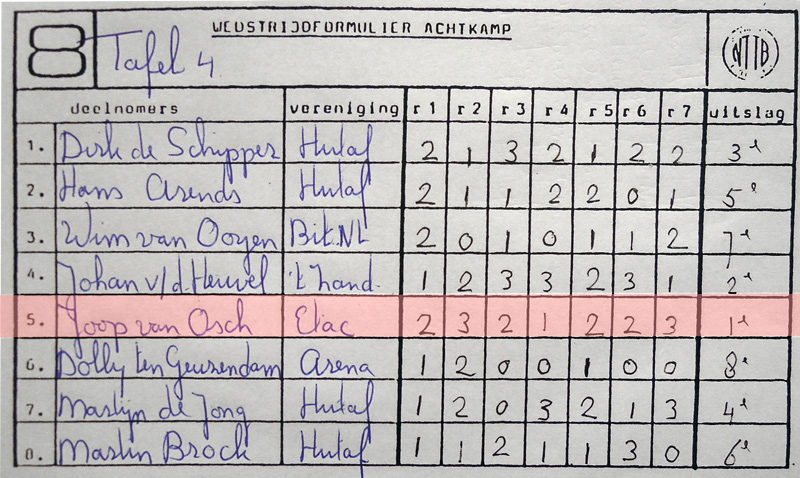 8
WEDSTRIJDFORMULIER ACHTKAMP
Tafel 4
NTTB
deelnemers vereniging r 1 r 2 r 3 r 4 r 5 r 6 r 7 uitslag
1. Dirk de Schipper Hutaf 2 1 3 2 1 2 2 3e
2. Hans Arends Hutaf 2 1 1 2 2 0 1 5e
3. Wim van Ooyen Bit.NL 2 0 1 0 1 1 2 7e
4. Johan v/d. Heuvel 't hand. 1 2 3 3 2 3 1 2e
5. Joop van Osch Elac 2 3 2 1 2 2 3 1e
6. Dolly ten Geusendam Arena 1 2 0 0 1 0 0 8e
7. Martijn de Jong Hutaf 1 2 0 3 2 1 3 4e
8. Martin Brock Hutaf 1 1 2 1 1 3 0 6e